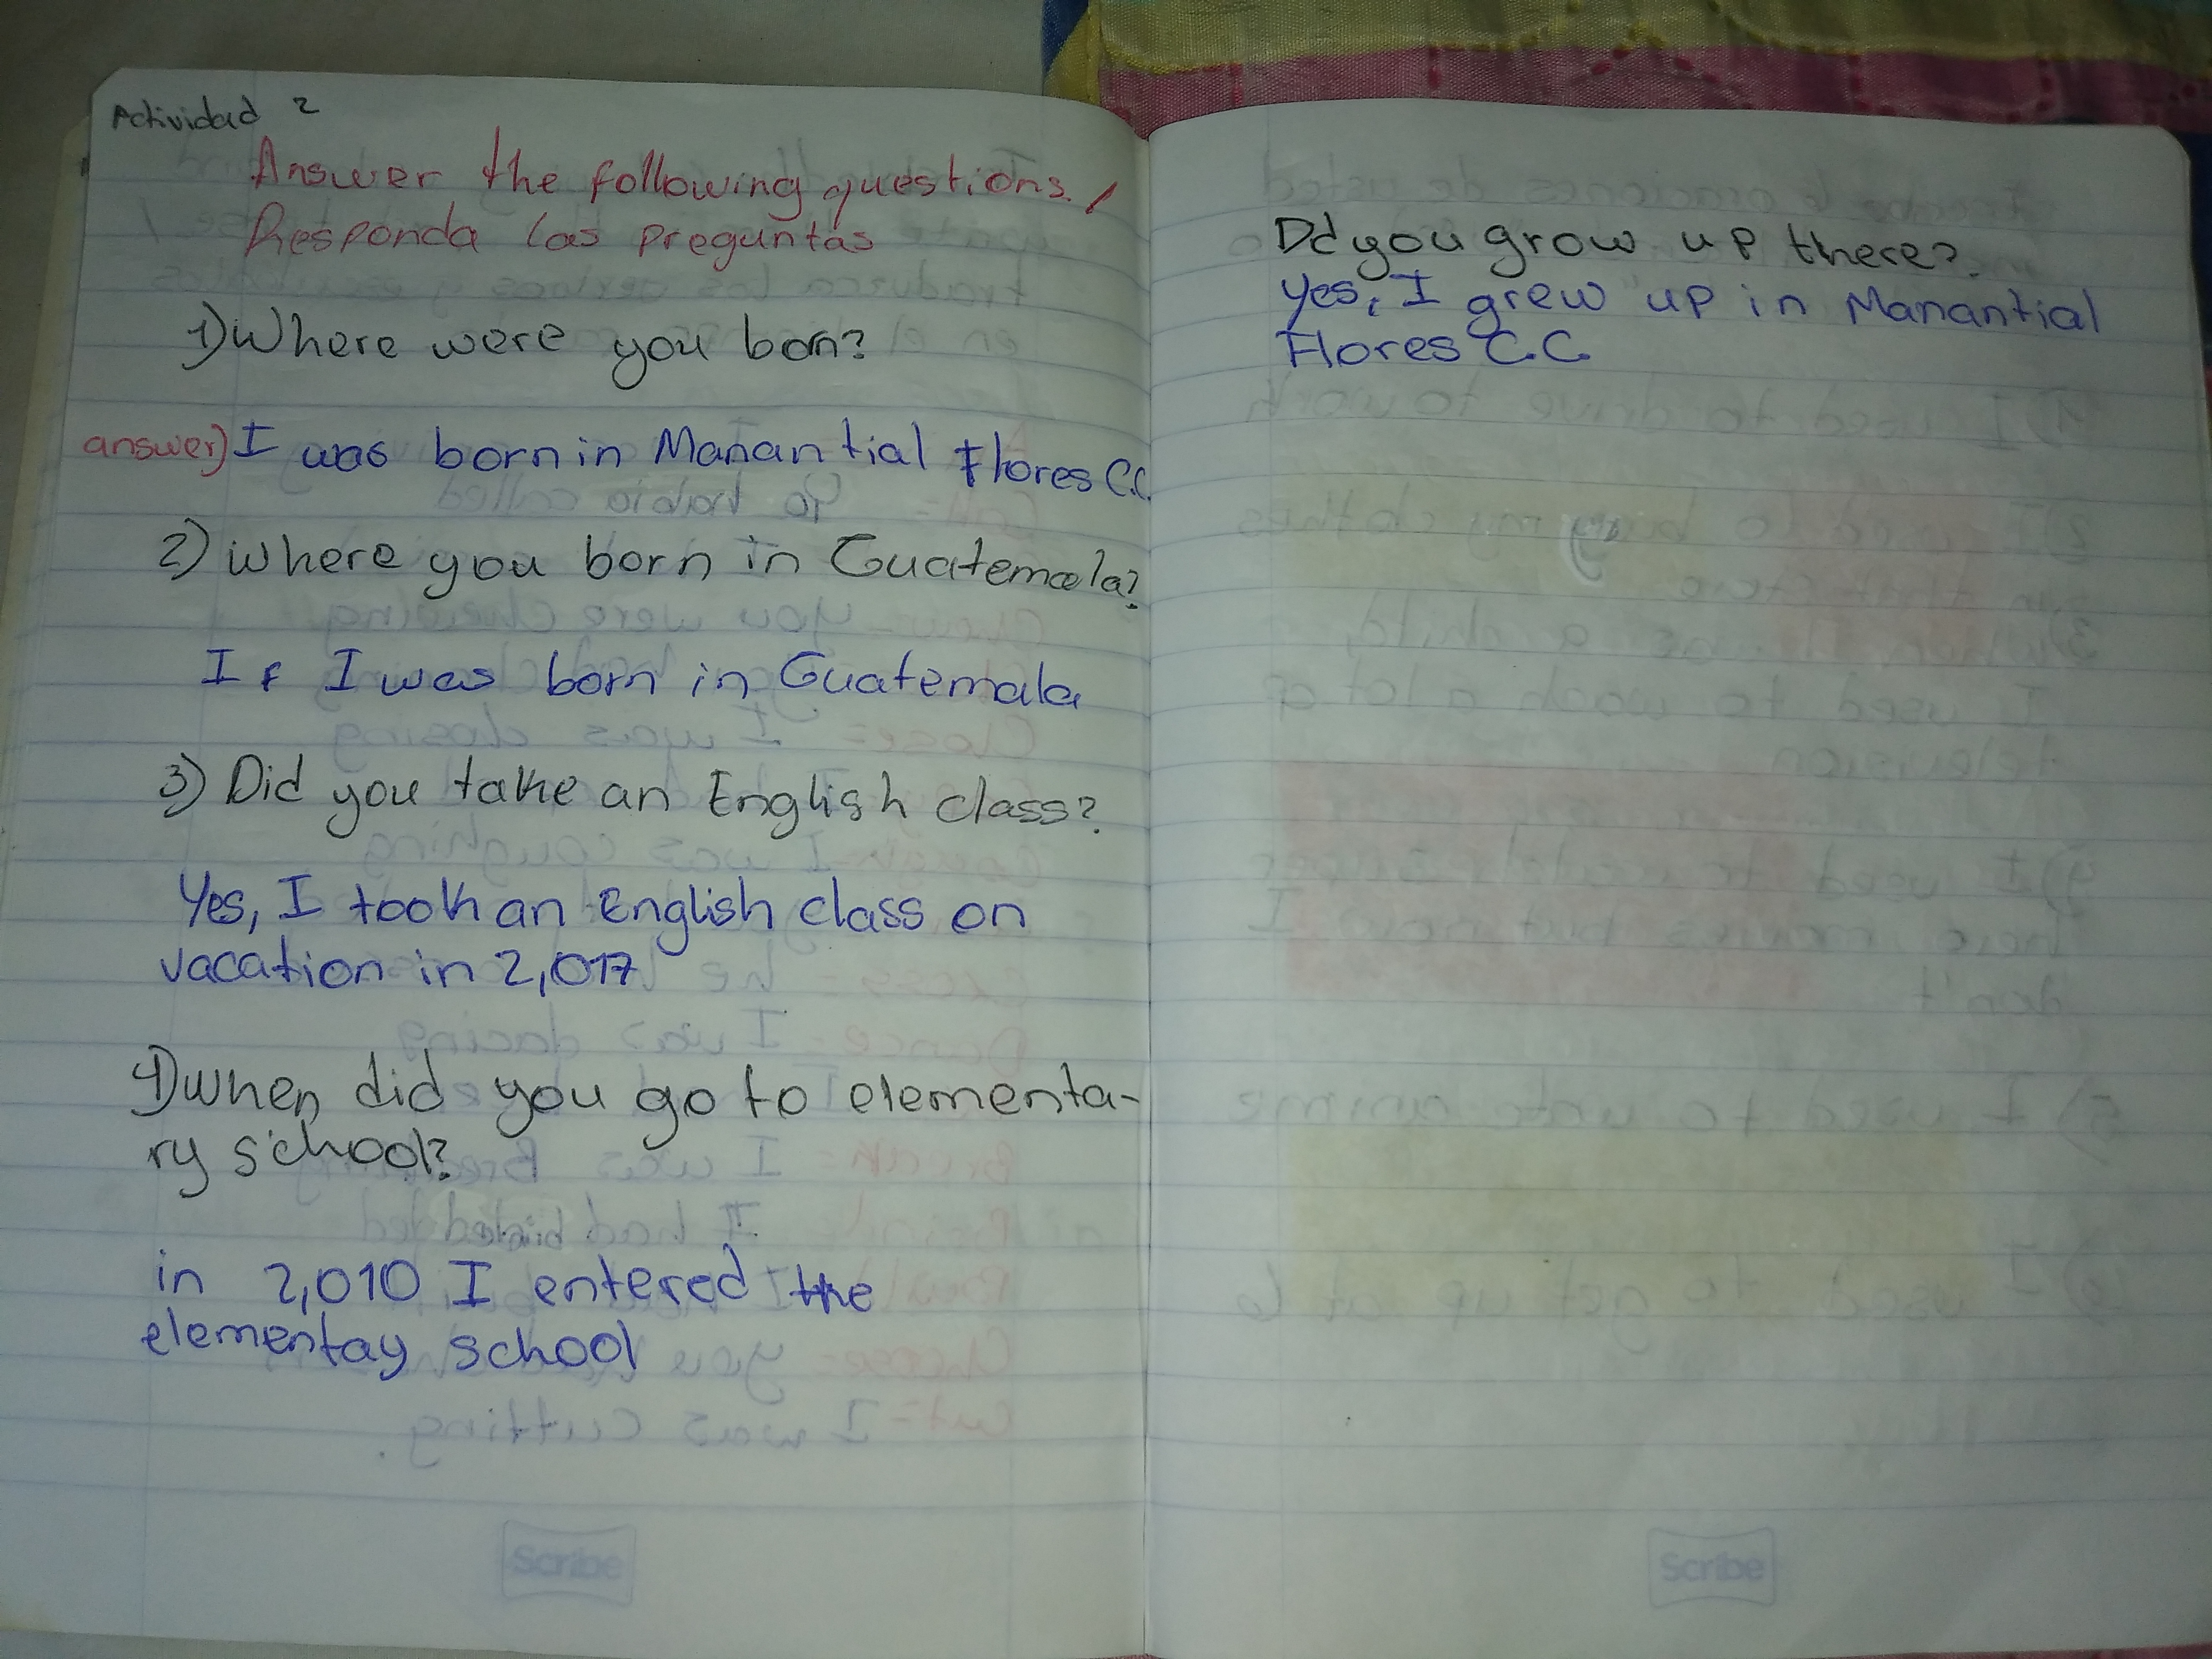 Actividad 2
Answer the following questions. /
Responda las preguntas
1) Where were you born?
answer) I was born in Manantial Flores C.C.
2) where you born in Guatemala?
If I was born in Guatemala
3) Did you take an English class?
Yes, I took an English class on
vacation in 2,017
4) when did you go to elementa-
ry school?
in 2,010 I entered the
elementay school
Scribe
Dd you grow up there?
yes, I grew up in Manantial
Flores C.C
Scribe